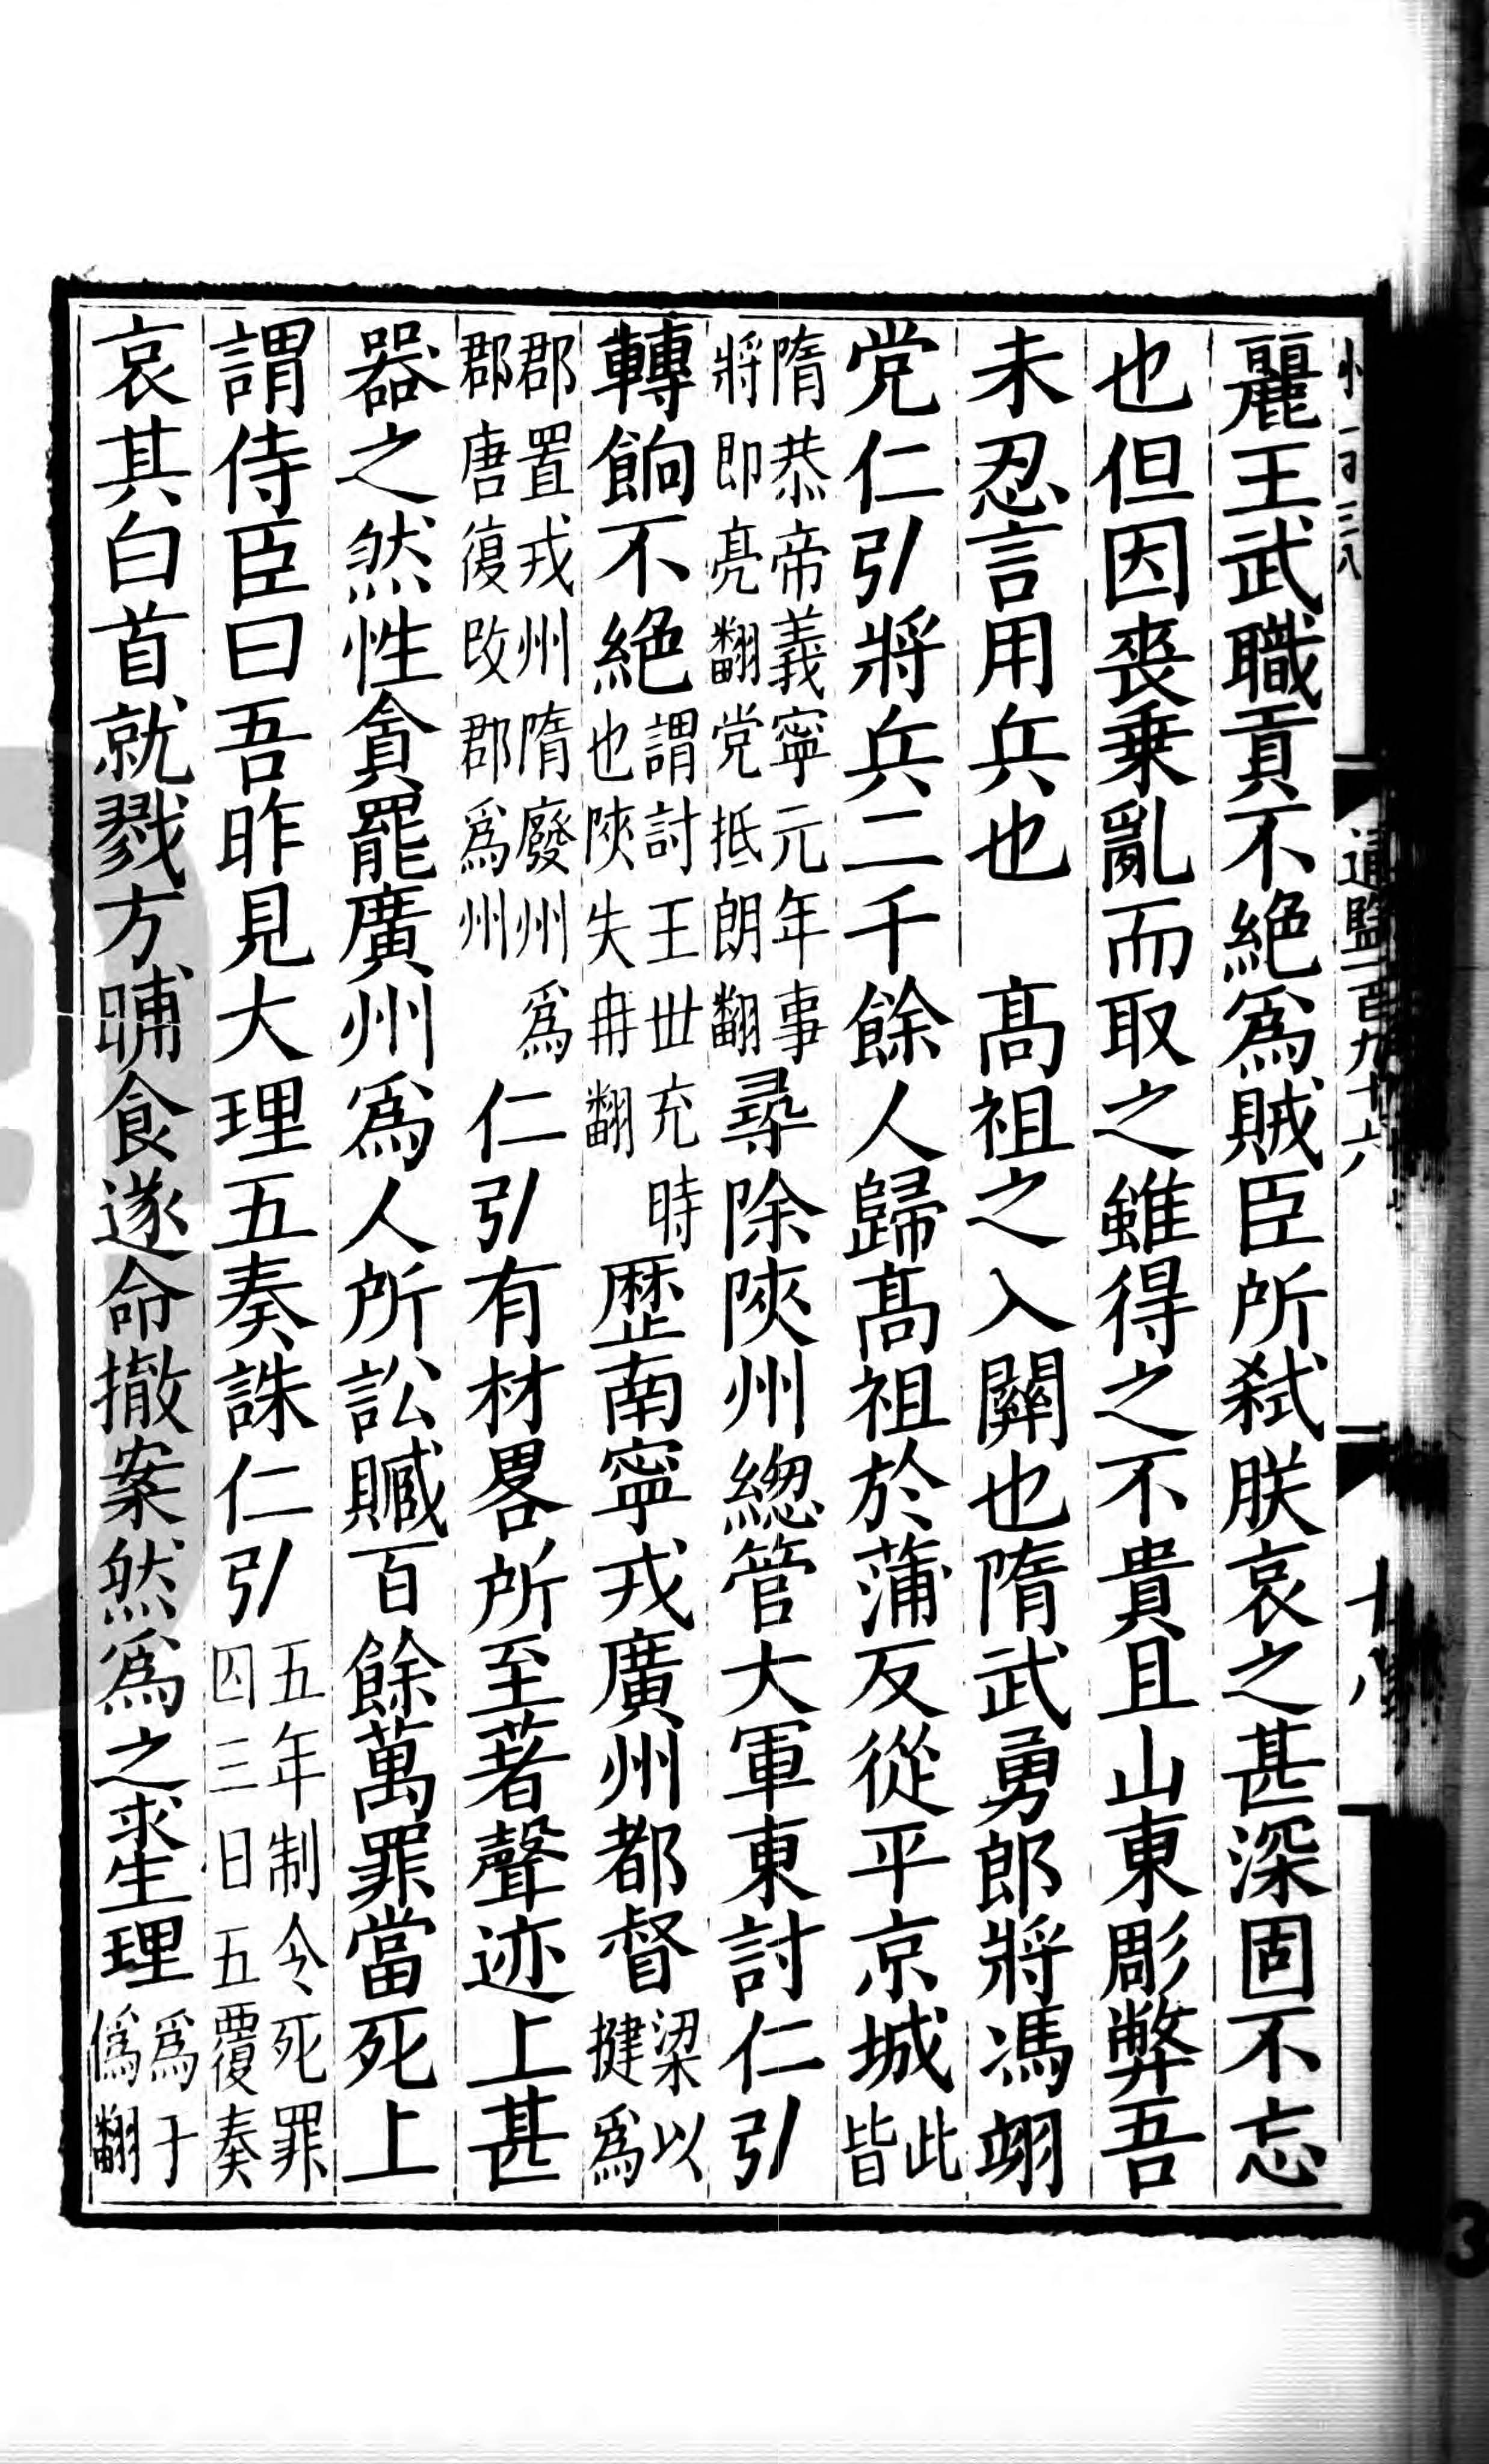 通鑑一百九十六
十八
麗王武職貢不絶爲賊臣所弑朕哀之甚深固不忘
也但因喪乗亂而取之雖得之不貴且山東彫弊吾
未忍言用兵也　髙祖之入關也隋武勇郎將馮翊
党仁引將兵二千餘人歸髙祖於蒲反從平京城此皆
隋恭帝義寧元年事將即亮翻党抵朗翻尋除陜州緫管大軍東討仁引
轉餉不絶謂討王世充時也陜失冉翻歷南寧戎廣州都督梁以犍爲
郡置戎州隋廢州爲郡唐復改郡爲州仁引有材畧所至著聲迹上甚
器之然性貪罷廣州爲人所訟贓百餘萬罪當死上
謂侍臣曰吾昨見大理五奏誅仁引五年制令死罪囚三日五覆奏
哀其白首就戮方晡食遂命撤案然爲之求生理爲于僞翻